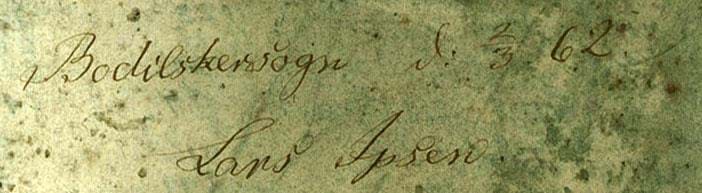 Bodilskersogn d: 2/3 62.
Lars Ipsen.